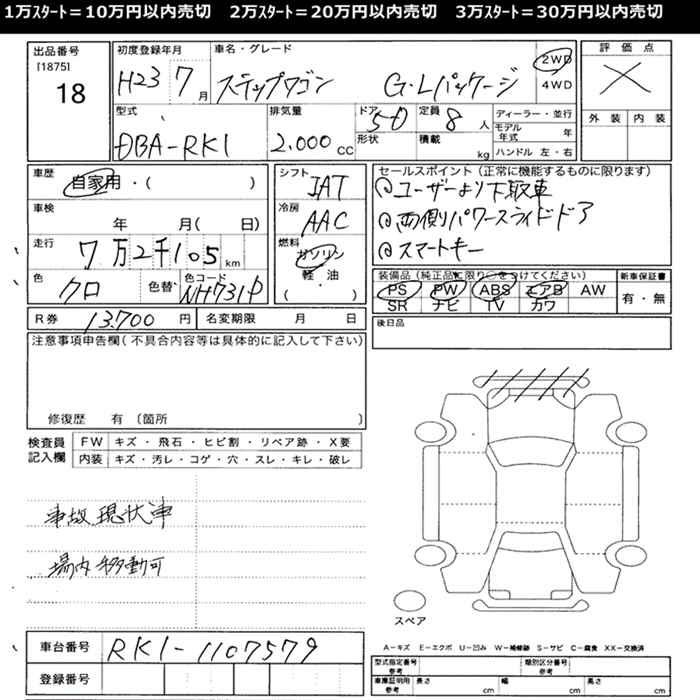 1万ｽﾀｰﾄ＝10万円以内売切　2万ｽﾀｰﾄ＝20万円以内売切　3万ｽﾀｰﾄ＝30万円以内売切
出品番号
[1875]
18
初度登録年月
H23 7月
車名・グレード
ステップワゴン G・Lパッケージ
2WD
4WD
評価点
外装 内装
型式
DBA-RK1
排気量
2.000 CC
ドア
5D
形状
定員
8人
積載
kg
ディーラー・並行
モデル年式 年
ハンドル 左・右
車歴
自家用・( )
車検
年 月( 日)
走行
7万2千105km
色
クロ
色替
色コード
NH731P
シフト
IAT
冷房
AAC
燃料
ガソリン
軽・油
( )
セールスポイント（正常に機能するものに限ります）
ユーザーより下取車
両側パワースライドドア
スマートキー
装備品（純正品に限り○をつけてください）
PS PW ABS エアB AW
SR ナビ TV カワ
新車保証書
有・無
R券 13.700 円
名変期限 月 日
後日品
注意事項申告欄（不具合内容等は具体的に記入して下さい）
修復歴 有〔箇所 〕
検査員
記入欄
FW キズ・飛石・ヒビ割・リペア跡・X要
内装 キズ・汚レ・コゲ・穴・スレ・キレ・破レ
事故現状車
場内移動可
スペア
車台番号 RK1-1107579
登録番号
A－キズ E－エクボ U－凹み W－補修跡 S－サビ C－腐食 XX－交換済
型式指定番号
参考
類別区分番号
参考
車庫証明用
参考
長さ cm 幅 cm 高さ cm